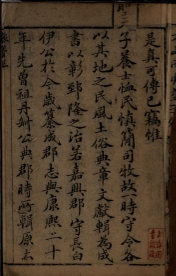 是真可傳已竊惟
子養士恤民慎簡司牧故一時守令各
以其地之民風土俗典章文獻輯為成
書以彰郅隆之治若嘉興郡守長白
伊公於今歲纂成郡志與康熙二十
年先曾祖丹斜公典郡時所輯原志